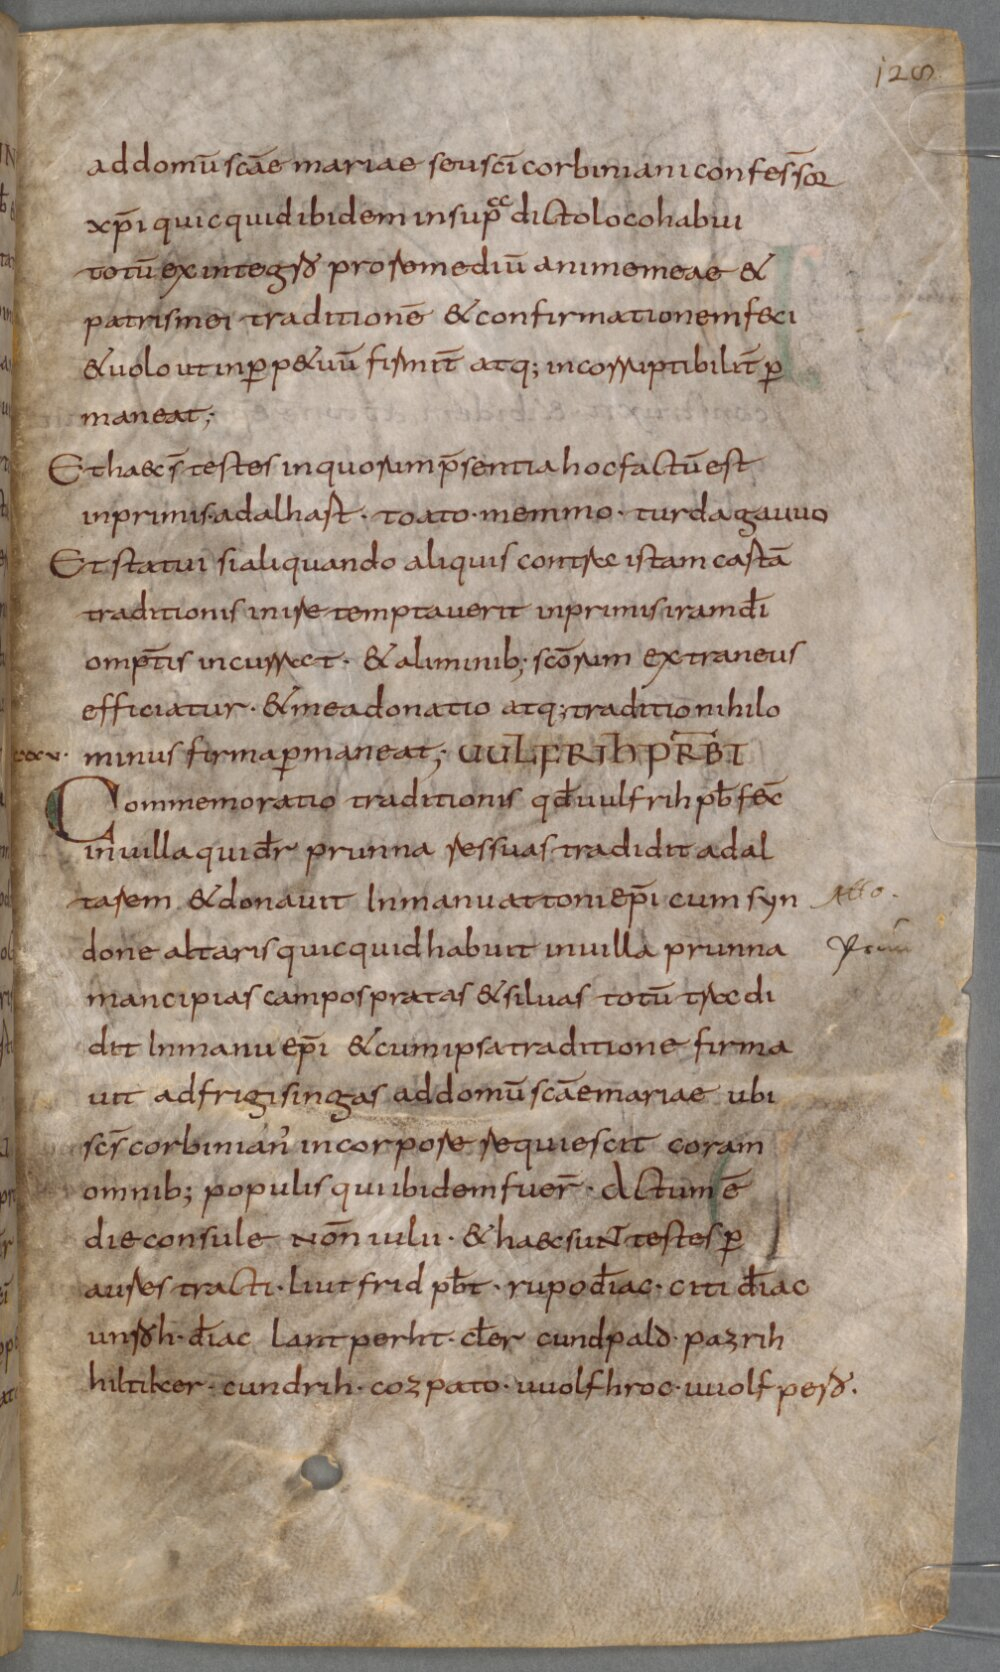 128
ad domū scāe mariae seu scī corbiniani confes̄sor
xp̄i quicquid ibidem in supͣ dicto loco habui
totū ex integro pro remediū anime meae &
patris mei traditionē & confirmationem feci
& uolo ut in ꝑp&uū firmit̄ atq; incorruptibilit̄ ꝑ
maneat;
Et haec s̄ testes in quorum p̄sentia hoc factū est
inprimis· adalhast· toato· memmo· turdagauuo
Et statui si aliquando aliquis contra istam castā
traditionis inire temptauerit inprimis iram dī
omp̄tis incurrat· & a liminib; scōrum extraneus
efficiatur· & mea donatio atq; traditio nihilo
minus firma ꝑmaneat; UULFRIH PR̄BT
Commemoratio traditionis qđ uulfrih pb̄ fec̄
in uilla qui dr̄ prunna res suas tradidit ad al
tarem & donauit In manu attoni ep̄i cum syn
Atto.
done altaris quicquid habuit in uilla prunna
mancipias campos pratas & siluas totū tradi
dit In manu ep̄i & cum ipsa traditione firma
uit ad frigisingas ad domū scāe mariae ubi
scs̄ corbinian' in corpore requiescit coram
omnib; populis qui ibidem fuer̄· Actum ē
die consule nōn iulii· & haec sunt testes ꝑ
aures tracti· liutfrid pb̄t· rupo diac̄· citi diac̄
unroh· diac̄ lantperht· cl̄er cundpald· pazrih
hiltiker· cundrih· cozpato· uuolfhroc· uuolfpero·